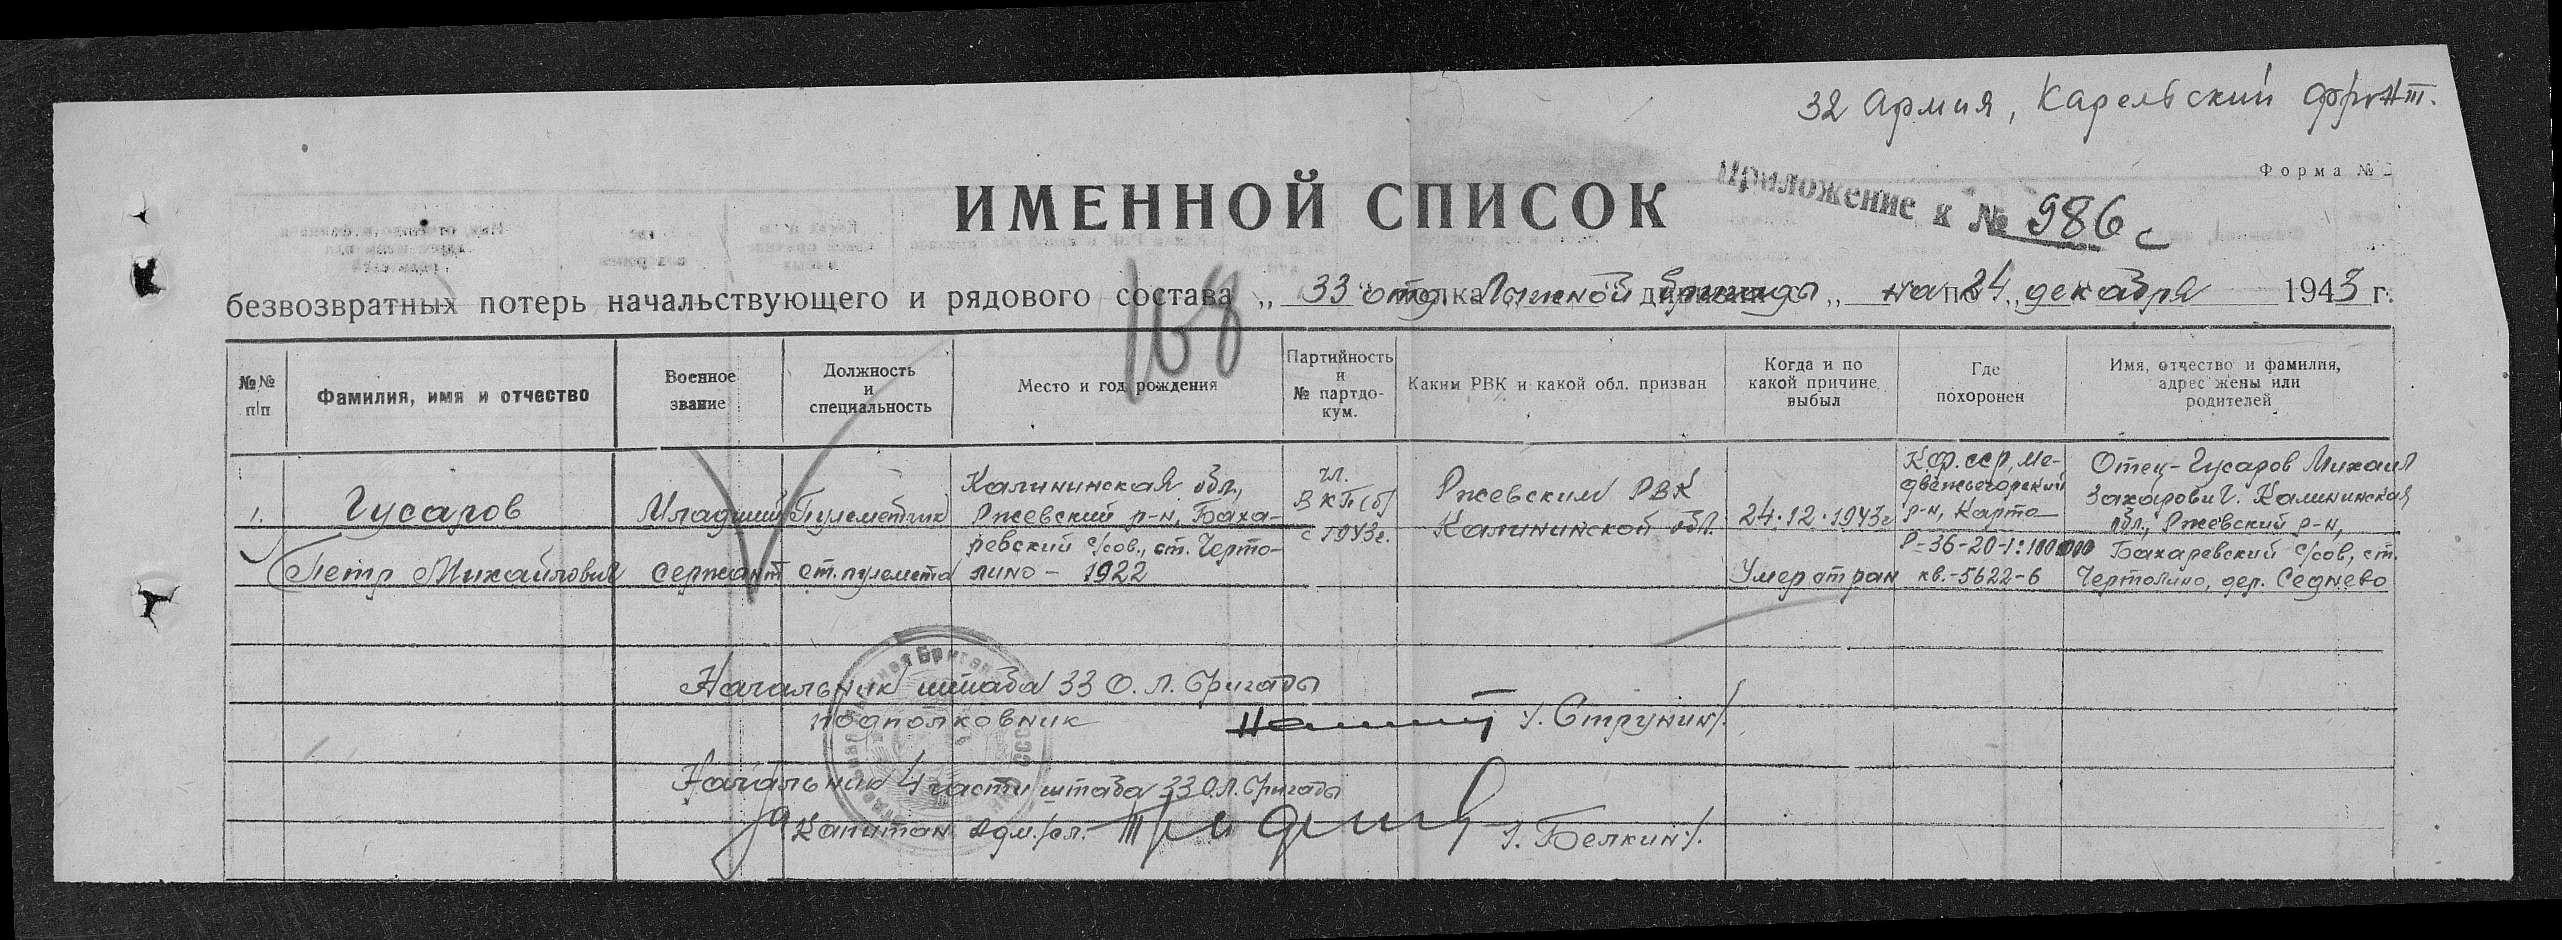 32 Армия, Карельский фронт.
Форма №
Приложение к № 986 с
ИМЕННОЙ СПИСОК
безвозвратных потерь начальствующего и рядового состава „ 33 отд. Лыжной бригады „ на 24 декабря 1943 г.
168
№№ п/п
Фамилия, имя и отчество
Военное звание
Должность и специальность
Место и год рождения
Партийность и № партдокум.
Каким РВК и какой обл. призван
Когда и по какой причине выбыл
Где похоронен
Имя, отчество и фамилия, адрес жены или родителей
1.
Гусаров
Петр Михайлович
Младший
сержант
Пулеметчик
ст. пулемета
Калининская обл.,
Ржевский р-н, Баха-
ревский с/сов., ст. Черто-
лино - 1922
чл.
ВКП(б)
с 1943г.
Ржевским РВК
Калининской обл.
24.12.1943г
Умер от ран
К.ф.сср, Ме-
двежьегорский
р-н, Карта
Р-36-20-1:100000
кв.-5622-б
Отец - Гусаров Михаил
Захарович. Калининская
обл., Ржевский р-н,
Бахаревский с/сов, ст.
Чертолино, дер. Седнево
Начальник штаба 33 О. Л. бригады
подполковник /. Струнин/.
Начальник 4 части штаба 33 О.Л. бригады
Капитан адм/сл. /. Белкин/.